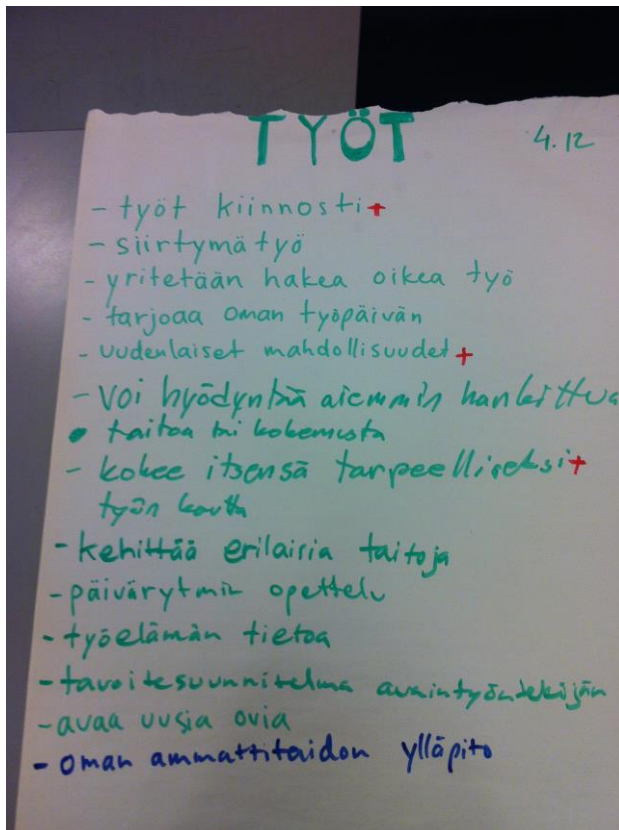 TYÖT 4.12
- työt kiinnosti +
- siirtymätyö
- yritetään hakea oikea työ
- tarjoaa oman työpäivän
- uudenlaiset mahdollisuudet +
- voi hyödyntää aiemmin hankittua
• taitoa tai kokemusta
- kokee itsensä tarpeelliseksi +
työn kautta
- kehittää erilaisia taitoja
- päivärytmin opettelu
- työelämän tietoa
- tavoitesuunnitelma avaintyöntekijän
- avaa uusia ovia
- oman ammattitaidon ylläpito